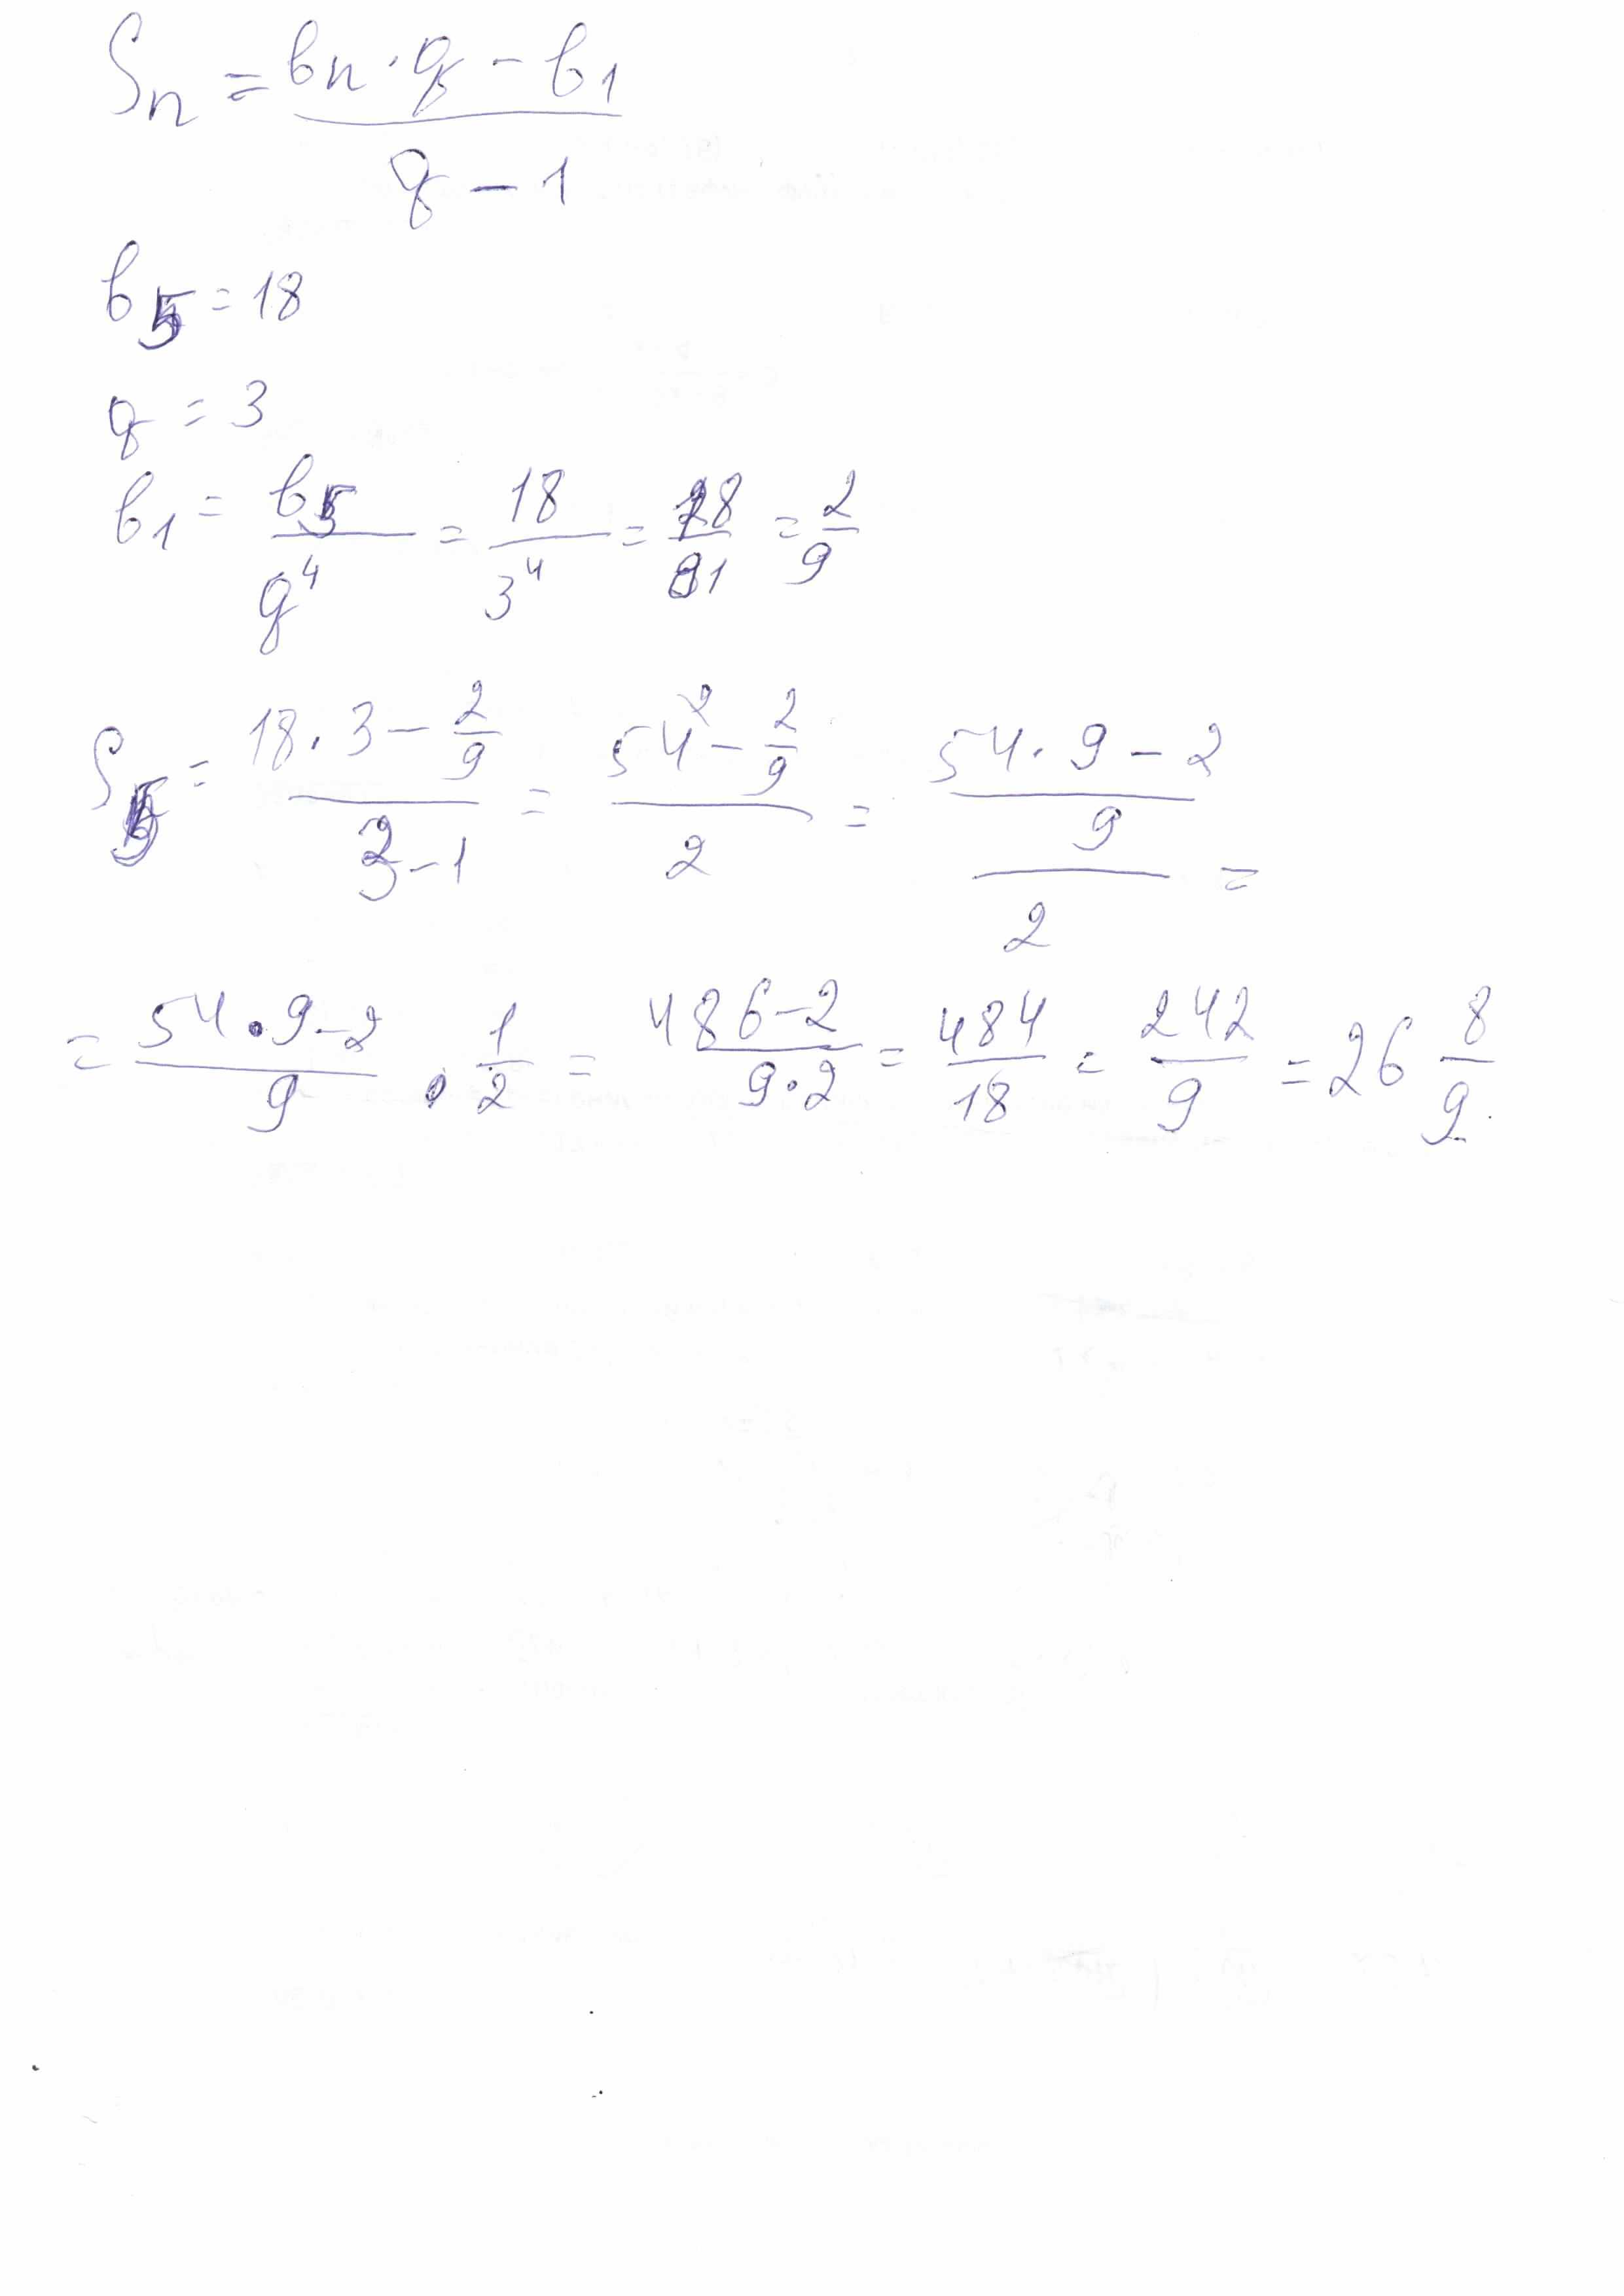 Sn = (bn · q - b1) / (q - 1)
b5 = 18
q = 3
b1 = b5 / q^4 = 18 / 3^4 = 18 / 81 = 2/9
S5 = (18 · 3 - 2/9) / (3 - 1) = (54 - 2/9) / 2 = ((54 · 9 - 2) / 9) / 2 =
= (54 · 9 - 2) / 9 · 1/2 = (486 - 2) / (9 · 2) = 484 / 18 = 242 / 9 = 26 8/9.